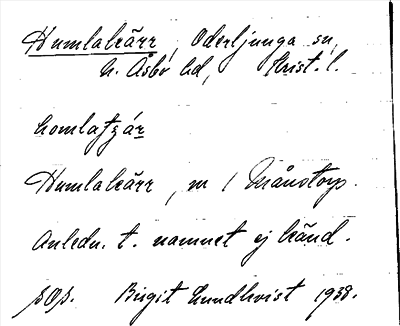 Humlakärr, Oderljunga sn,
N. Åsbo hd, Krist. l.
homlatʒár
Humlakärr, m / Månstorp.
Anledn. t. namnet ej känd.
sOs. Birgit Lundkvist 1938.